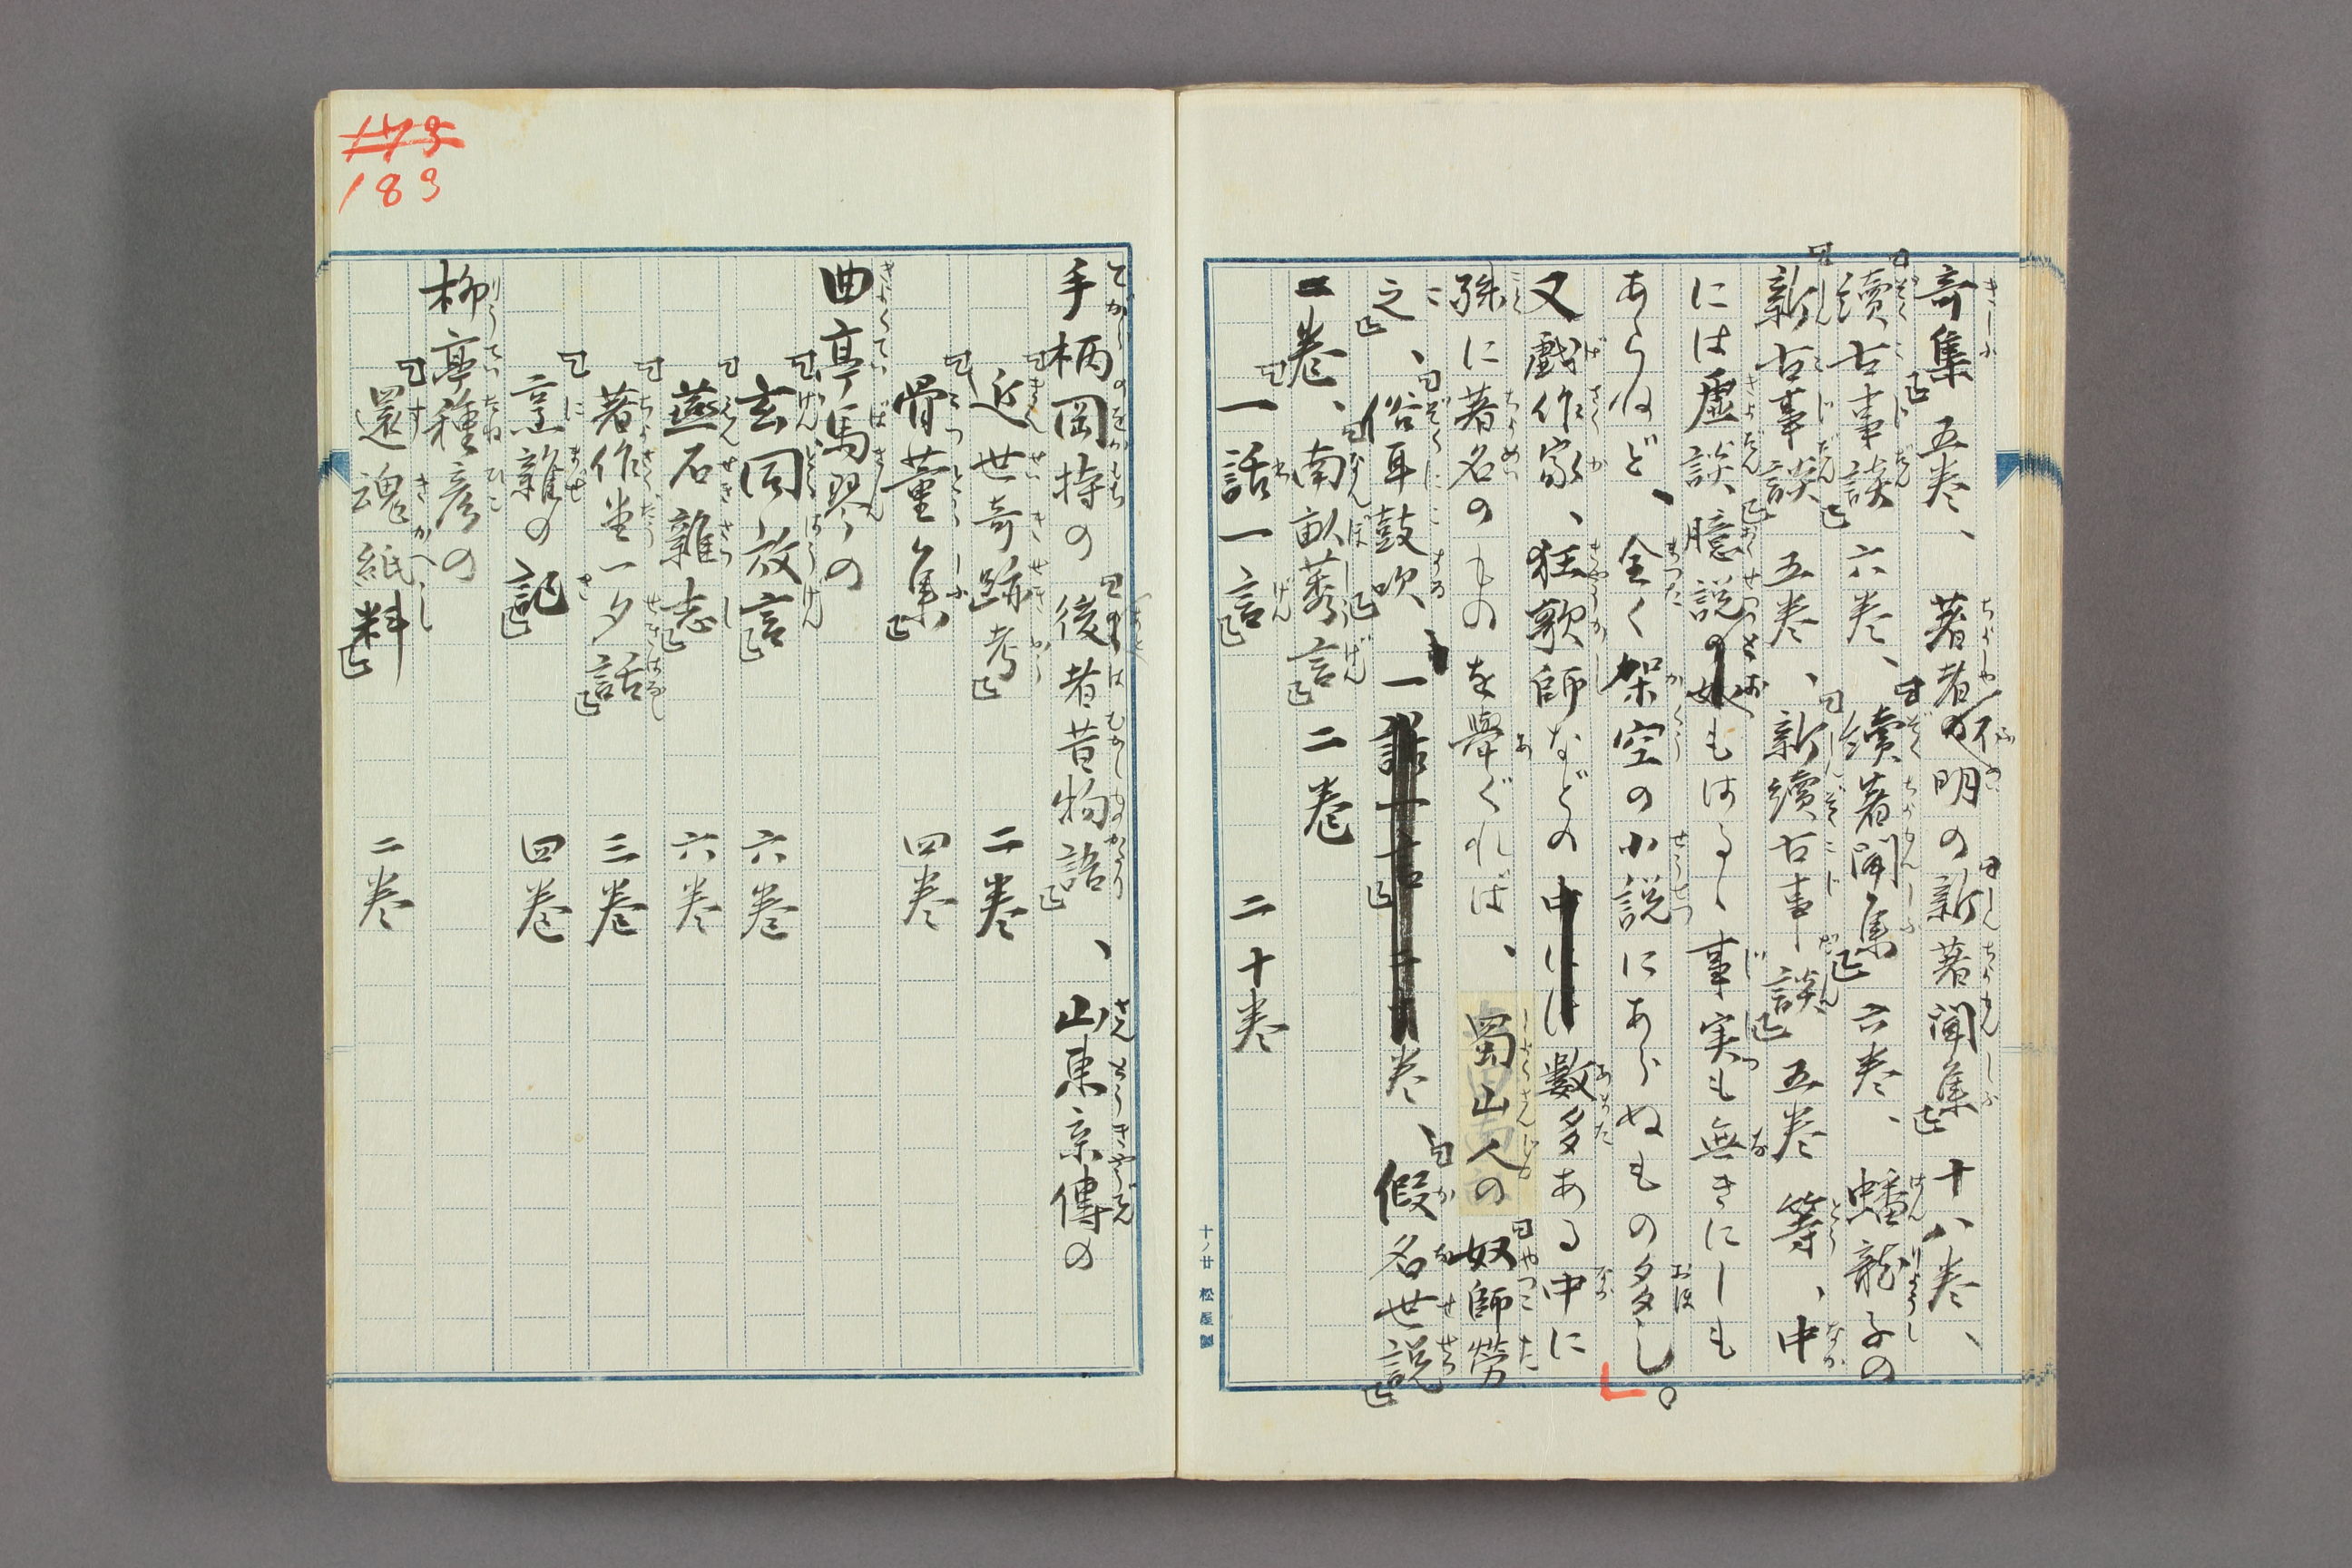 奇集』五巻、著者不明の『新著聞集』十八巻、
『續古事談』六巻、『續著聞集』六巻、蟠龍子の
『新古事談』五巻、『新續古事談』五巻等、中
には虚談、臆説とおぼしもはるゝ事実も無きにしも
あらねど、全く架空の小説にあらぬもの多し。
又戯作家、狂歌師などの數多ある中に
殊に著名のものを舉ぐれば、蜀山人の『奴師勞
之』、『俗耳鼓吹』一巻、『假名世説』
二巻、『南畝莠言』二巻
『一話一言』二十巻
手柄岡持の『後者昔物語』、山東京傳の
『近世奇跡考』二巻
『骨董集』四巻
曲亭馬琴の
『玄同放言』六巻
『燕石雜志』六巻
『著作堂一夕話』三巻
『烹雜の記』四巻
柳亭種彦の
『還魂紙料』二巻
183
十ノ廿 松屋製